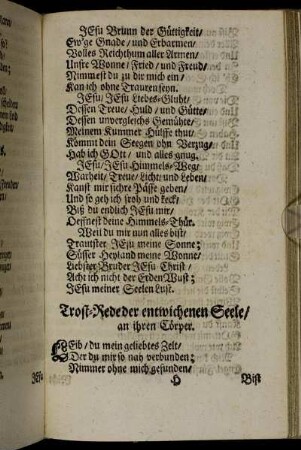 JEsu Brunn der Güttigkeit/
Ew'ge Gnade/ und Erbarmen/
Volles Reichthum aller Armen/
Unsre Wonne/ Fried/ und Freud/
Nimmest du zu dir mich ein/
Kan ich ohne Trauren seyn.
JEsu/ JEsu Liebes-Gluht/
Dessen Treue/ Huld/ und Gütte/
Dessen unvergleichs Gemühte/
Meinem Kummer Hülffe thut/
Kommt dein Seegen ohn Verzug/
Hab ich GOtt/ und alles gnug.
JEsu/ JEsu Himmels-Weg/
Warheit/ Treue/ Licht und Leben/
Kanst mir sichre Pässe geben/
Und so geh ich froh und keck/
Biß du endlich JEsu mir/
Oeffnest deine Himmels-Thür.
Weil du mir nun alles bist/
Trautster JEsu meine Sonne;
Süsser Heyland meine Wonne/
Liebster Bruder JEsu Christ/
Acht ich nicht der Erden Wust;
JEsu meiner Seelen Lust.
Trost-Rede der entwichenen Seele/
an ihren Cörper.
LEib/ du mein geliebtes Zelt/
Der du mir so nah verbunden;
Nimmer ohne mich gefunden/
Bist